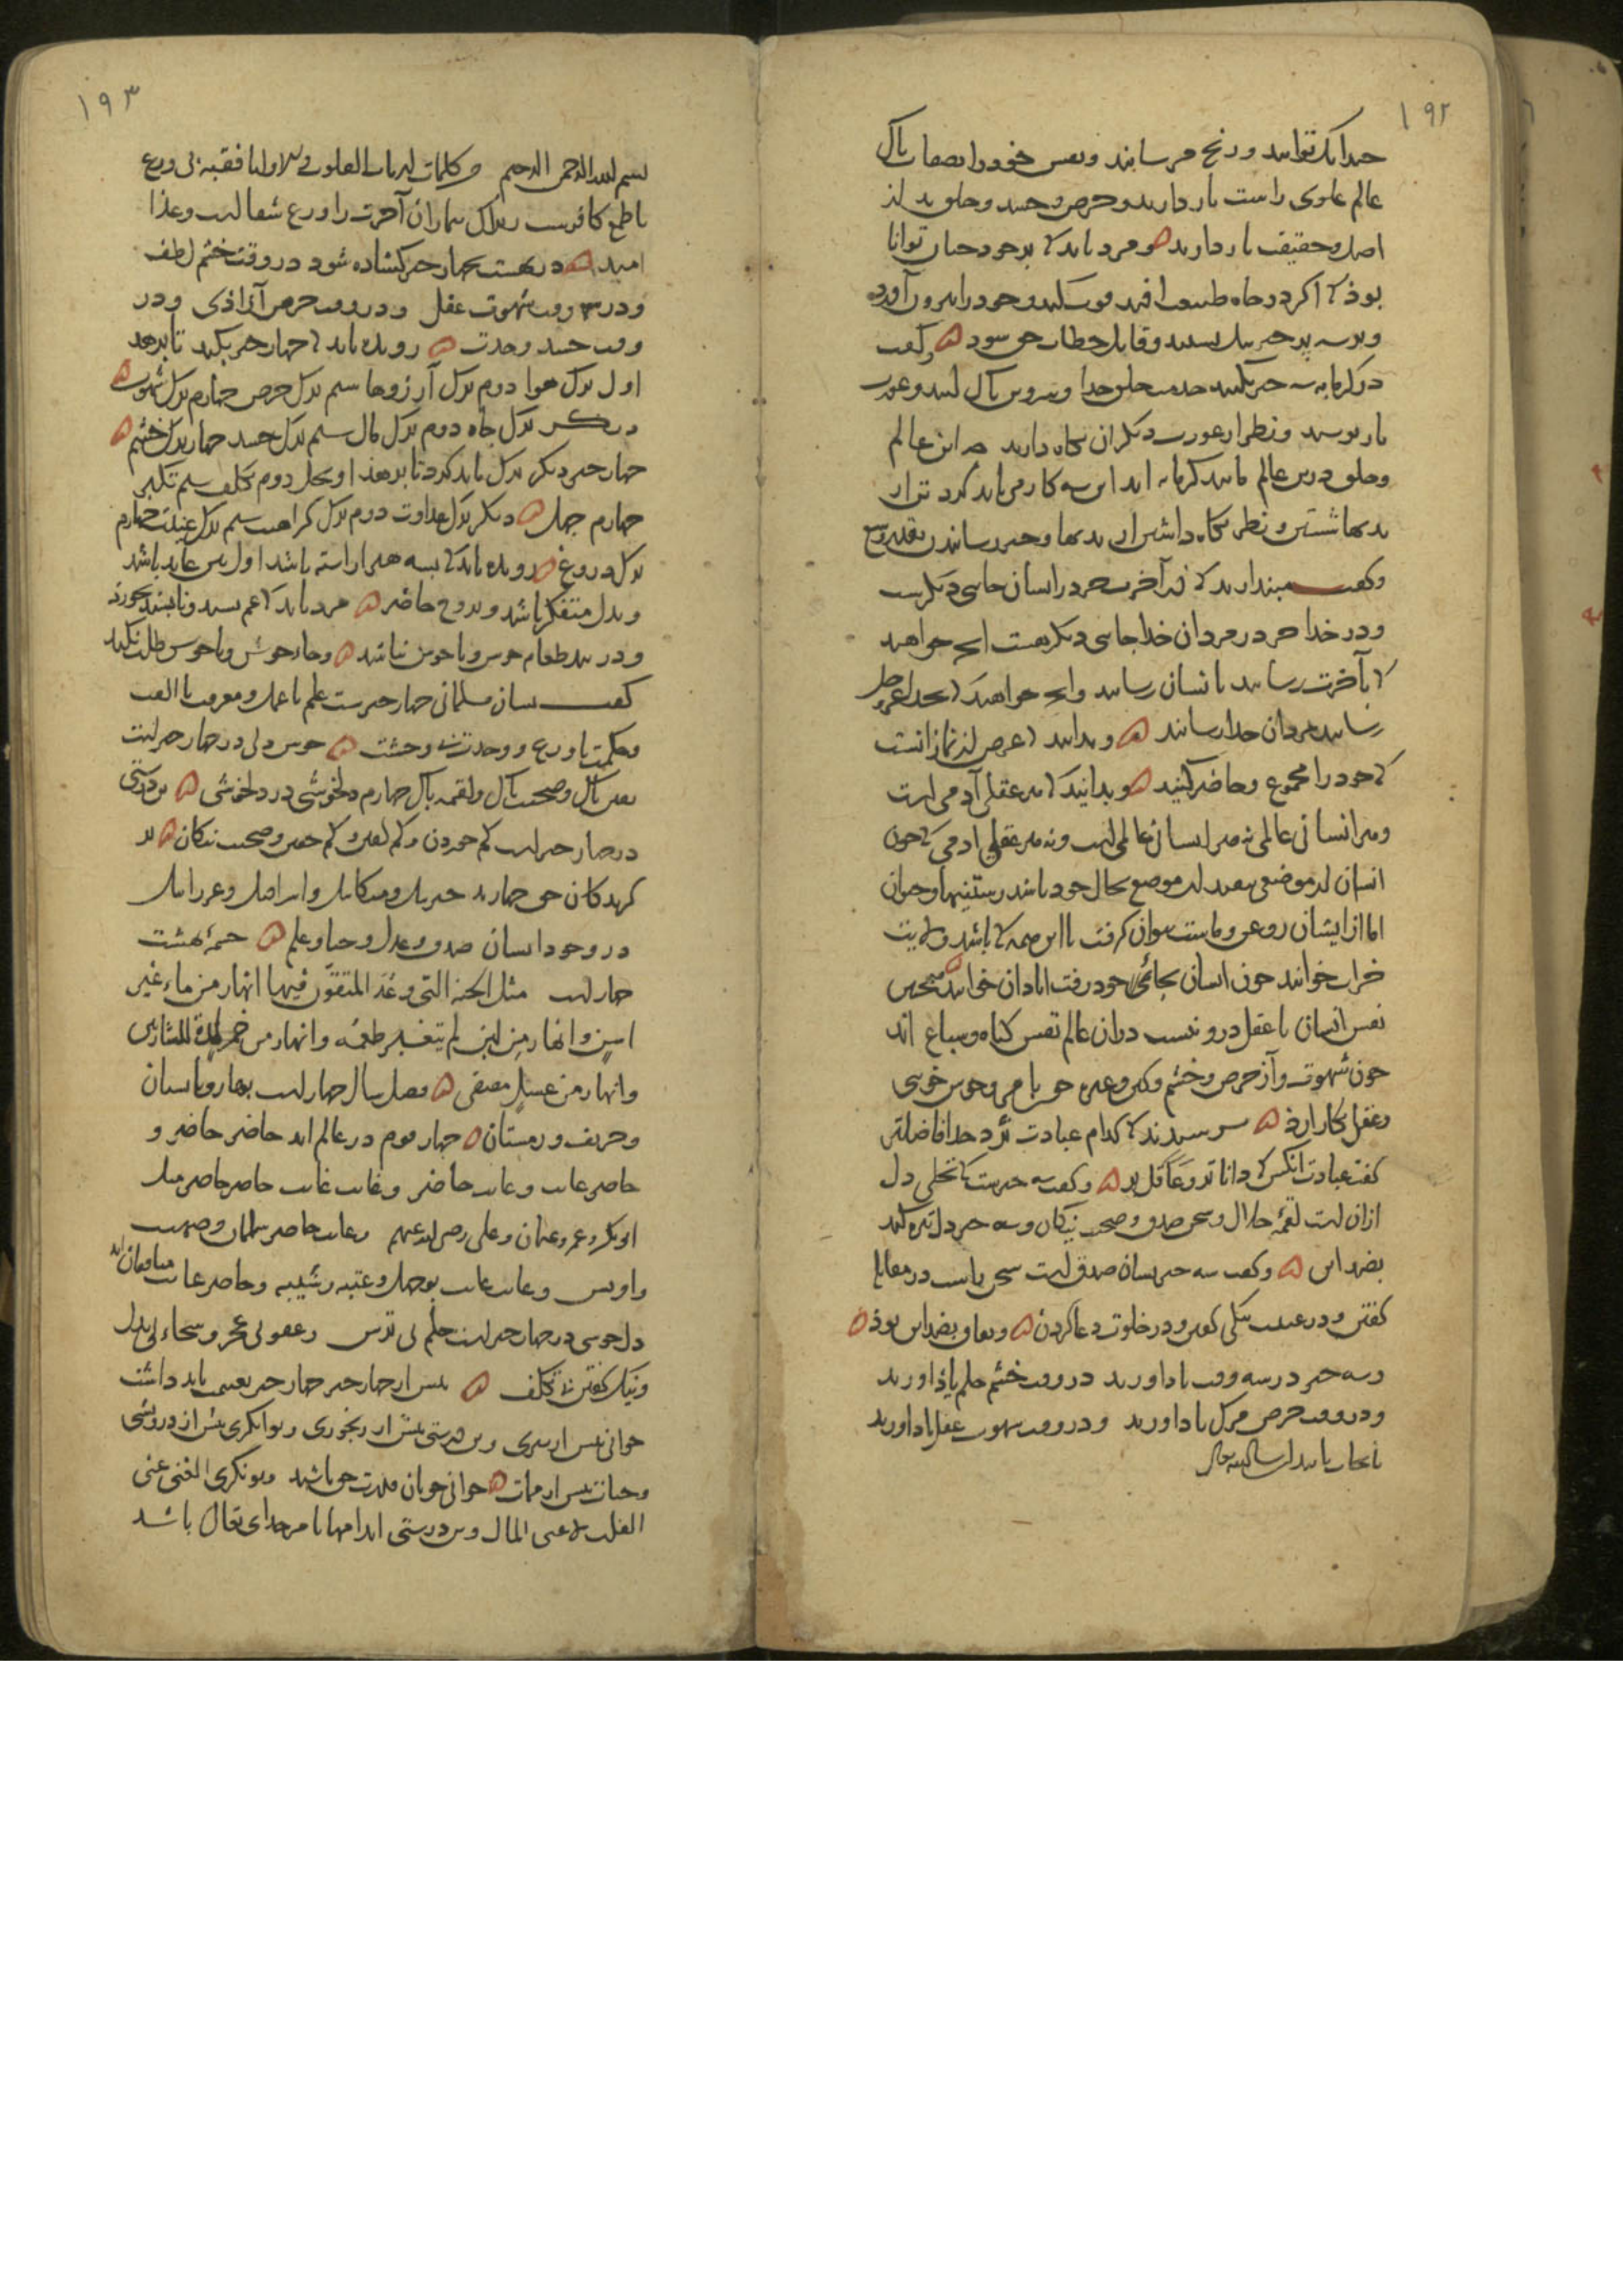 ۱۹۲
خدا تک توانند و رنج مرسانند و نفس خود را بصفات پاک
عالم علوی راست باز دارید و حرص و حسد و خلق بد از
اصل و حقیقت باز دارید و مرد باید کی بر خود چنان توانا
بوذ کی اگر در چاه طبیعت افتد قوت کند و خود را بیرون آورد
و قابل خطاب حق شود و گفت
در گرمابه سه چیز بکنید خدمت خلق خدا و تن پاک کنید و عورت
باز پوشید و نظر از عورت دیگران نگاه دارید این عالم
و خلق درین عالم مانند گرمابه اند این سه کار می باید کرد تن از
بدیها شستن و نظر نگاه داشتن از بدیها و خیر رسانیدن
و گفت مپندارید کی در آخرت جز در انسان جایی دیگرست
و در خدا جز در مردان خدا جایی دیگر هست انچ خواهید
کی بآخرت رسانید بانسان رسانید و انچ خواهید کی بخدا عز و جل
رسانید بمردان خدا رسانید و بدانید کی غرض از نماز آنست
کی خود را مجموع و حاضر کنید و بدانید کی هر عقلی آدمی است
و هر انسانی عالمی نه هر انسانی عالمی است و نه هر عقلی ادمی کی چون
انسان از موضعی بموضع بحال خود باشد رستنیها و حیوان
اما از ایشان روغن و ماست نتوان گرفت باین همه کی باشد ولایت
خراب خوانند چون انسان بجائی خود رفت ابادان خوانند همچنین
نفس انسان با عقل درو نیست دران عالم نفس گیاه و سباع اند
چون شهوت و آز حرص و خشم و کبر و غیره خوش بامی و خوش خویی
و عقل بکار ارذ پرسیدند کی کدام عبادت نزد خدا فاضلتر
گفت عبادت انکس کی داناتر و عاقل تر و گفت سه چیزست کی تجلی دل
ازان است لقمۀ حلال و سخن صدق و صحبت نیکان و سه چیز دل تیره کند
بضد این و گفت سه چیز نشان صدق است سخن راست در مقابل
گفتن و در غیبت نیکی گفتن و در خلوت دعا کردن و نفاق بضد این بوذ
و سه چیز در سه وقت یاد اورید در وقت خشم حلم یاذ اورید
و در وقت حرص مرگ یاد اورید و در وقت شهوت عقل یاد اورید
۱۹۳
بسم الله الرحمن الرحیم من کلمات ارباب القلوب فقیه بی ورع
با طمع کافرست بیماران آخرت را ورع شفا است و غذا
امید در بهشت بچهار چیز گشاده شود در وقت خشم لطف
و در وقت شهوت عقل و در وقت حرص آزاذی و در
وقت حسد وحدت رونده باید کی چهار چیز بکند تا برهد
اول ترک هوا دوم ترک آرزوها سیم ترک حرص چهارم ترک شهوت
دیگر ترک جاه دوم ترک مال سیم ترک حسد چهارم ترک خشم
چهار چیز دیگر ترک باید کرد تا برهذ اول بخل دوم تکلف سیم تکبر
چهارم جهل دیگر ترک عداوت دوم ترک کراهیت سیم ترک غیبت چهارم
ترک دروغ رونده باید کی بسه هنر اراسته باشد اول بتن عابد باشد
و بدل متفکر باشد و بروح حاضر مرد باید کی غم نسیه و نابینند نخورد
و در بند طعام خوش و جامه خوش نباشد و جای خوش و یا خوش طلب نکند
گفت نشان مسلمانی چهار چیزست علم با عمل و معرفت با الفت
و حکمت با ورع و وحدت بی وحشت خوش دلی در چهار چیز است
نفس پاک و صحبت پاک و لقمه پاک چهارم دلخوشی در دلخوشی تن درستی
در چهار چیز است کم خوردن و کم گفتن و کم خفتن و صحبت نیکان
گزیدگان حق چهارند جبریل و میکائیل و اسرافیل و عزرائیل
در وجود انسان صدق و عدل و حیا و علم چشمۀ بهشت
چهار است مثل الجنه التی وعد المتقون فیها انهار من ماء غیر
اسن و انهار من لبن لم یتغیر طعمه و انهار من خمر لذة للشاربین
و انهار من عسل مصفی فصل سال چهار است بهار و تابستان
و خریف و زمستان چهار قوم در عالم اند حاضر حاضر و
حاضر غایب و غایب حاضر و غایب غایب حاضر حاضر مثل
ابوبکر و عمر و عثمان و علی رضی الله عنهم و غایب حاضر سلمان و صهیب
و اویس و غایب غایب بوجهل و عتبه و شیبه و حاضر غایب منافقان اند
دل خوشی در چهار چیز است حلم بی ترس و عفو بی عجز و سخاء بی بدل
و نیک گفتن بی تکلف پیش از چهار چیز چهار چیز غنیمت باید داشت
جوانی پیش از پیری و تن درستی پیش از رنجوری و توانگری پیش از درویشی
و حیات پیش از ممات جوانی خوبان قدرت حق باشد و تونگری الغنی غنی
القلب لا غنی المال و تن درستی اندامها بامر خدای تعالی باشد